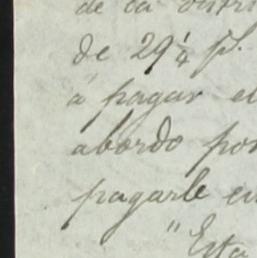 de la
de 29 1/4 p.
á pagar e
abordo por
pagarle en
"Esta